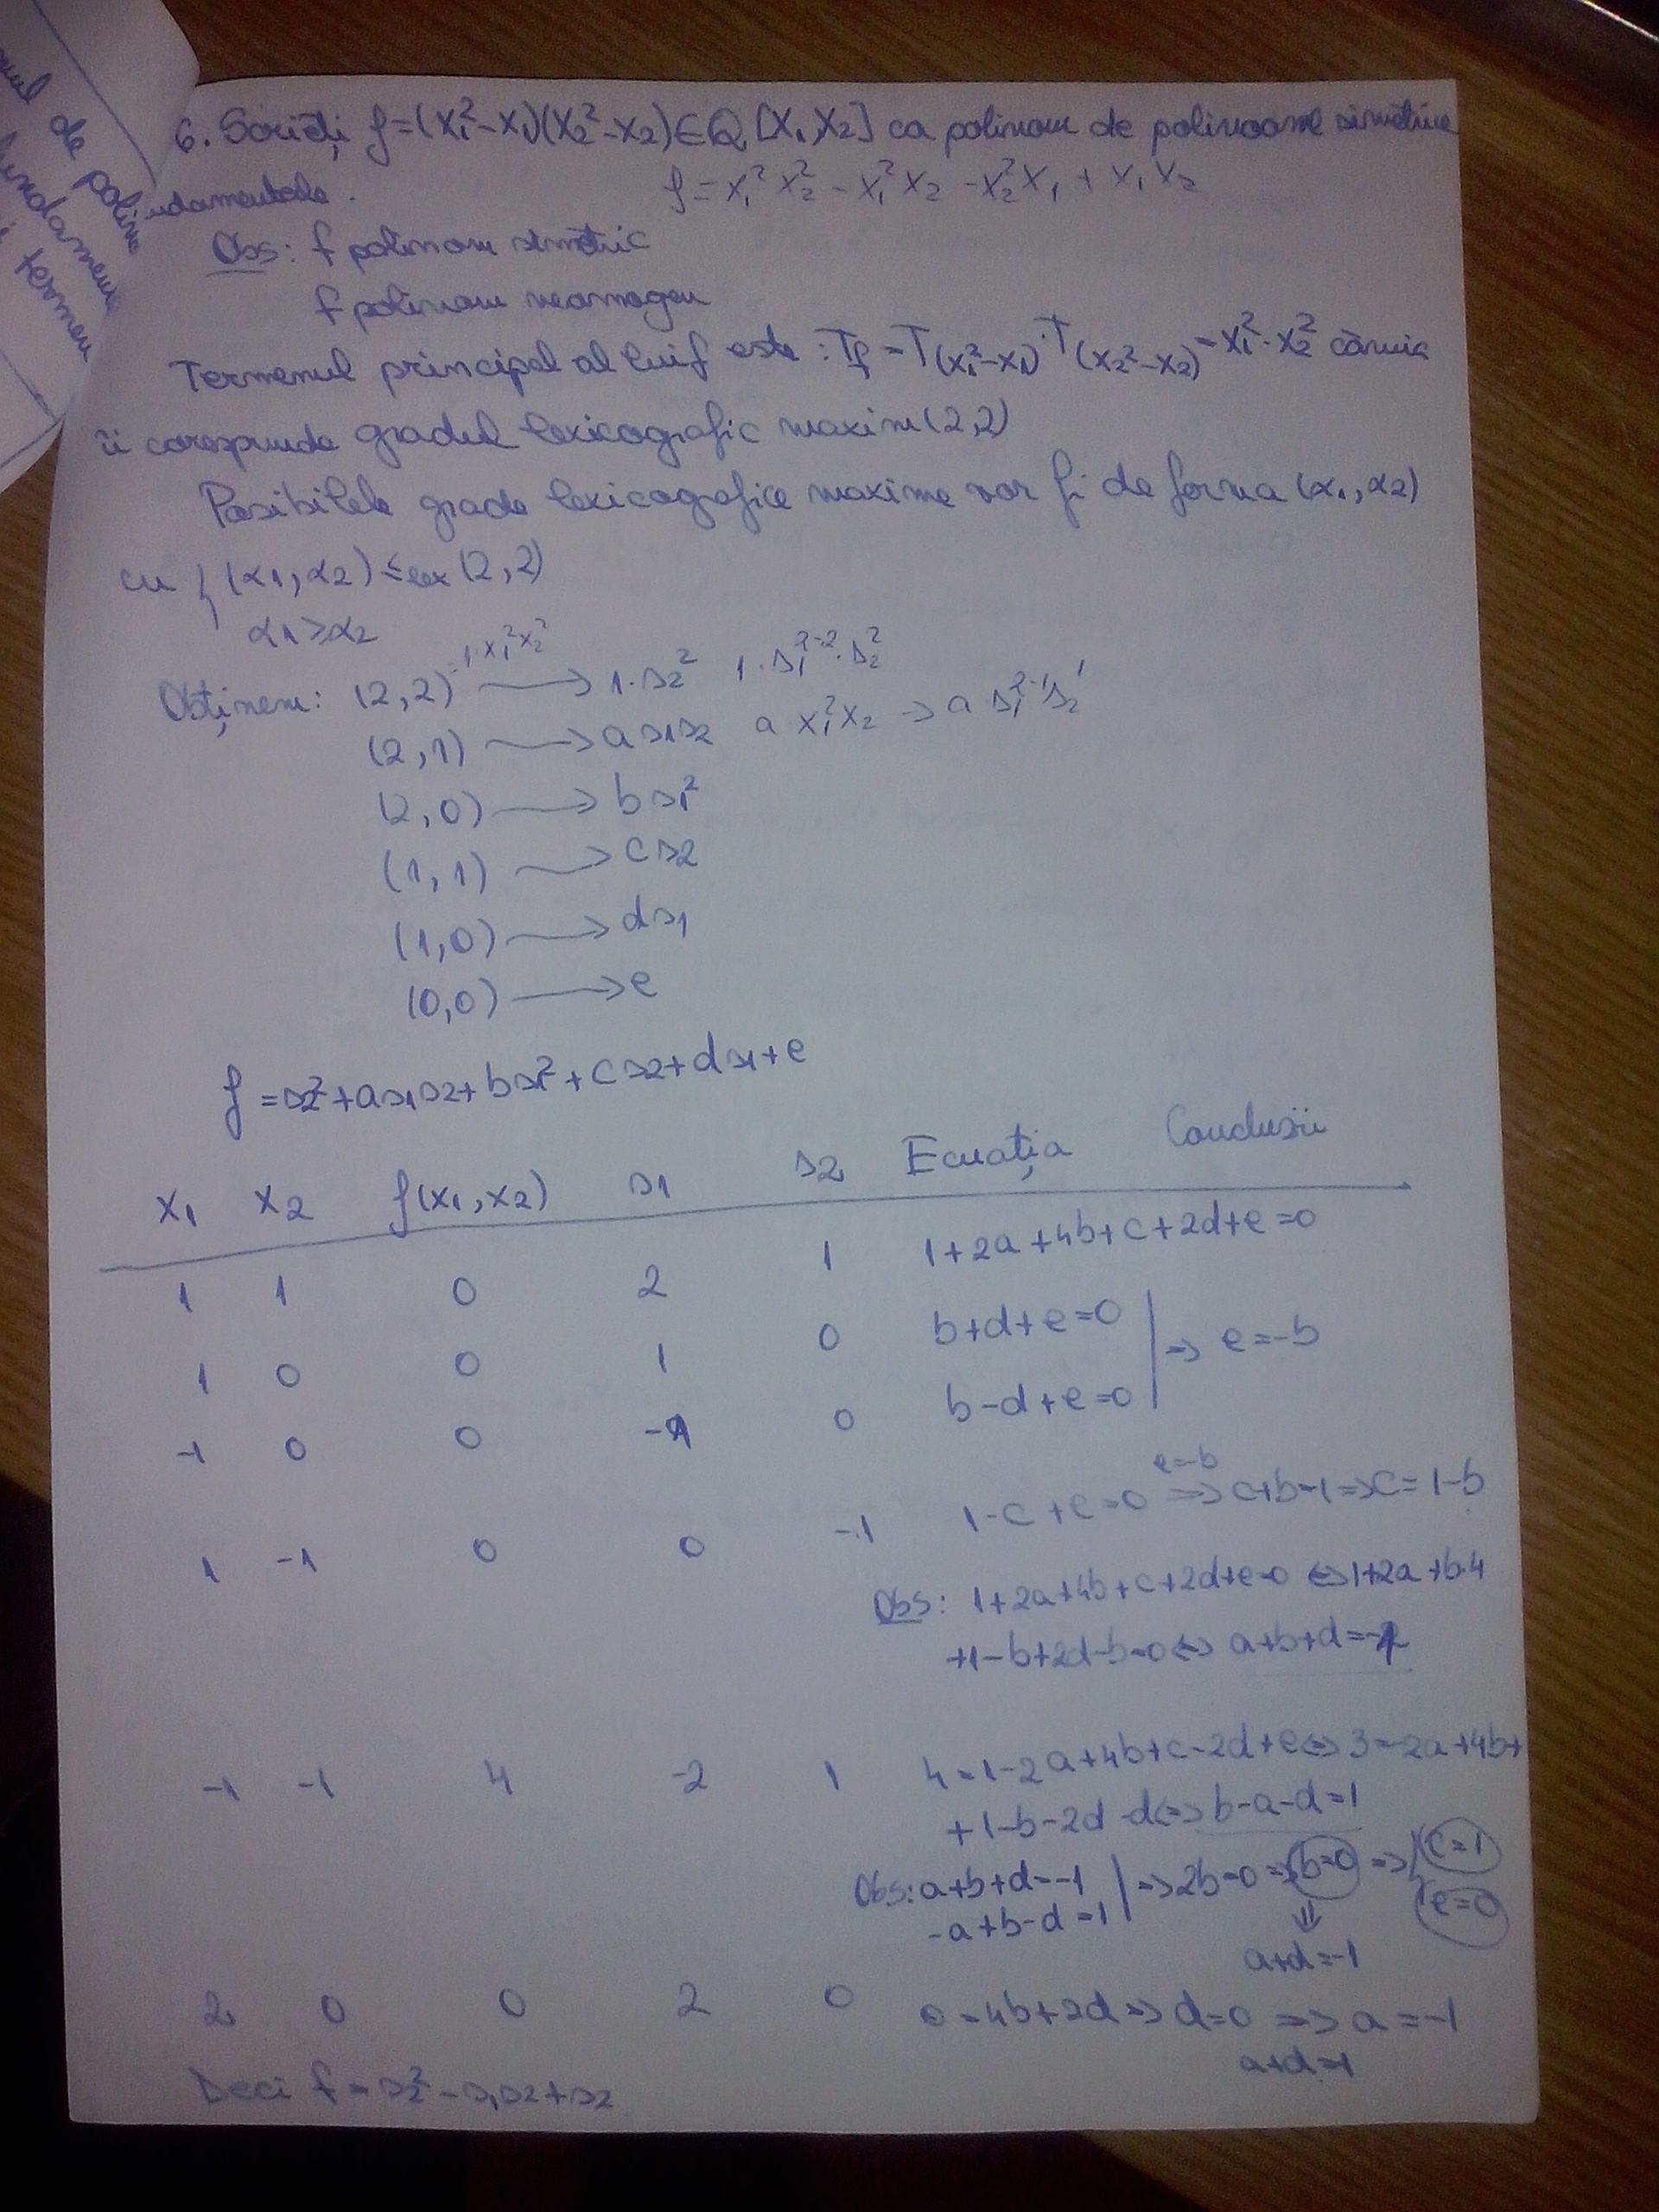 mul de polin
fundamen
i termen
6. Scrieți f=(x₁²-x₁)(x₂²-x₂)∈Q[x₁,x₂] ca polinom de polinoame simetrice
ndamentale.
f=x₁²x₂²-x₁²x₂-x₂²x₁+x₁x₂
Obs: f polinom simetric
f polinom neomogen
Termenul principal al lui f este: T_f=T(x₁²-x₁)·T(x₂²-x₂)=x₁²·x₂² căruia
îi corespunde gradul lexicografic maxim (2,2)
Posibilele grade lexicografice maxime vor fi de forma (α₁,α₂)
cu { (α₁,α₂) ≤lex (2,2)
α₁≥α₂
Obținem: (2,2) =1·x₁²x₂² → 1·s₂² 1·s₁²⁻²·s₂²
(2,1) → as₁s₂ a x₁²x₂ → a s₁²⁻¹s₂¹
(2,0) → bs₁²
(1,1) → cs₂
(1,0) → ds₁
(0,0) → e
f=s₂²+as₁s₂+bs₁²+cs₂+ds₁+e
x₁ x₂ f(x₁,x₂) s₁ s₂ Ecuația Concluzii
1 1 0 2 1 1+2a+4b+c+2d+e=0
1 0 0 1 0 b+d+e=0
⇒ e=-b
-1 0 0 -1 0 b-d+e=0
1 -1 0 0 -1 1-c+e=0 ⇒(e=-b) c+b=1⇒c=1-b
Obs: 1+2a+4b+c+2d+e=0 ⇔1+2a+b·4
+1-b+2d-b=0⇔ a+b+d=-1
-1 -1 4 -2 1 4=1-2a+4b+c-2d+e⇔3=-2a+4b+
+1-b-2d-d⇔b-a-d=1
Obs: a+b+d=-1
-a+b-d=1 | ⇒2b=0⇒b=0 ⇒ { c=1
e=0
⇓
a+d=-1
2 0 0 2 0 0=4b+2d⇒d=0 ⇒ a=-1
a+d=-1
Deci f=s₂²-s₁s₂+s₂